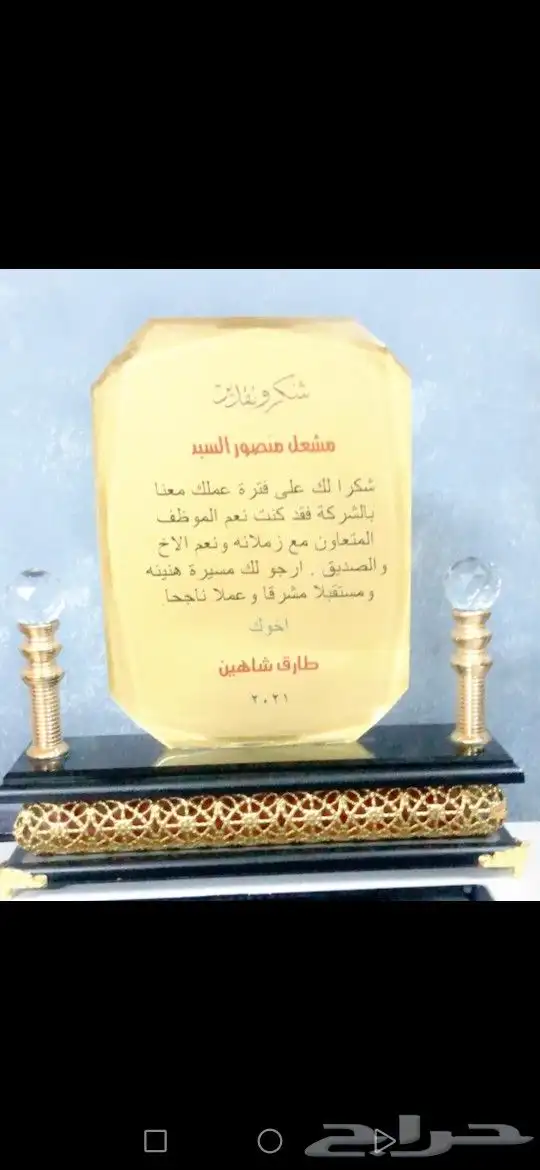 شكر وتقدير
مشعل منصور السيد
شكرا لك على فترة عملك معنا
بالشركة فقد كنت نعم الموظف
المتعاون مع زملائه ونعم الاخ
والصديق . ارجو لك مسيرة هنيئه
ومستقبلا مشرقا وعملا ناجحا
اخوك
طارق شاهين
٢٠٢١
حراج